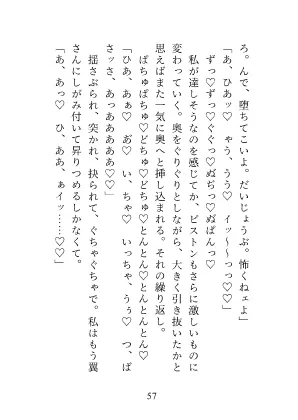 ろ。んで、堕ちてこいよ。だいじょうぶ。怖くねェよ」
「あ、ひあッ♡　ゃう、うう♡　イッ～～っっ♡♡」
ずっ♡ずっ♡ぐぐっ♡ぬぢっ♡ぬぱんっ♡
私が達しそうなのを感じてか、ピストンもさらに激しいものに
変わっていく。奥をぐりぐりとしながら、大きく引き抜いたかと
思えばまた一気に奥へと挿し込まれる。それの繰り返し。
ばちゅばちゅ♡どちゅ♡どちゅ♡とんとん♡とんとんとん♡
「ひあ、あぁ♡あ゛♡　い、ちゃ♡　いっちゃ、うぅ♡　つ、ば
さッ、さぁっああああああ♡♡」
揺さぶられ、突かれ、抉られて、ぐちゃぐちゃで。私はもう翼
さんにしがみ付いて昇りつめるしかなくて。
「あ、あっ♡　ひ、ああ、ぁイッ……♡♡」
57